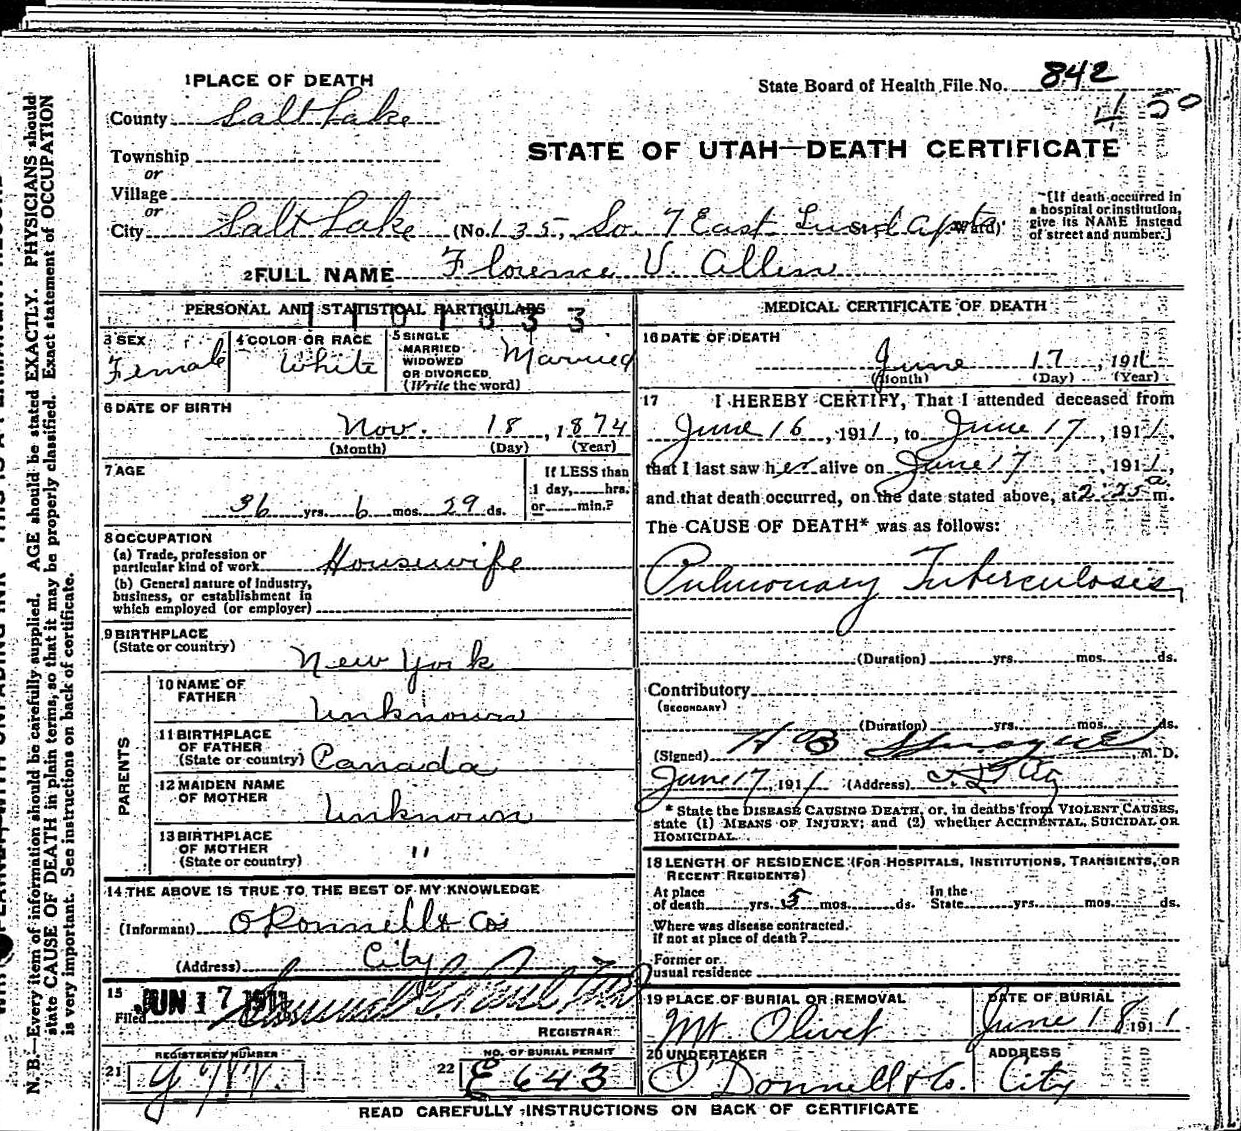 1 PLACE OF DEATH
State Board of Health File No. 842
County Salt Lake
Township
or
Village
or
City Salt Lake (No. 135, So. 7 East Ward)
STATE OF UTAH—DEATH CERTIFICATE
[If death occurred in a hospital or institution, give its NAME instead of street and number.]
2 FULL NAME Florence V. Allen
PERSONAL AND STATISTICAL PARTICULARS
3 SEX Female
4 COLOR OR RACE White
5 SINGLE MARRIED WIDOWED OR DIVORCED (Write the word) Married
6 DATE OF BIRTH
Nov. 18, 1874
(Month) (Day) (Year)
7 AGE
36 yrs. 6 mos. 29 ds.
If LESS than 1 day, hrs. or min.?
8 OCCUPATION
(a) Trade, profession or particular kind of work Housewife
(b) General nature of industry, business, or establishment in which employed (or employer)
9 BIRTHPLACE
(State or country) New York
PARENTS
10 NAME OF FATHER Unknown
11 BIRTHPLACE OF FATHER (State or country) Canada
12 MAIDEN NAME OF MOTHER Unknown
13 BIRTHPLACE OF MOTHER (State or country) "
14 THE ABOVE IS TRUE TO THE BEST OF MY KNOWLEDGE
(Informant) O'Donnell & Co's
(Address) City
15
Filed JUN 17 1911
REGISTRAR
21 REGISTERED NUMBER
22 NO. OF BURIAL PERMIT E 643
MEDICAL CERTIFICATE OF DEATH
16 DATE OF DEATH
June 17, 1911
(Month) (Day) (Year)
17 I HEREBY CERTIFY, That I attended deceased from
June 16, 1911, to June 17, 1911,
that I last saw her alive on June 17, 1911,
and that death occurred, on the date stated above, at 2:25 a m.
The CAUSE OF DEATH* was as follows:
Pulmonary Tuberculosis
(Duration) yrs. mos. ds.
Contributory
(SECONDARY)
(Duration) yrs. mos. ds.
(Signed) H B Sprague, M. D.
June 17, 1911 (Address)
* State the DISEASE CAUSING DEATH, or, in deaths from VIOLENT CAUSES,
state (1) MEANS OF INJURY; and (2) whether ACCIDENTAL, SUICIDAL OR
HOMICIDAL.
18 LENGTH OF RESIDENCE (FOR HOSPITALS, INSTITUTIONS, TRANSIENTS, OR
RECENT RESIDENTS)
At place of death yrs. 5 mos. ds. In the State yrs. mos. ds.
Where was disease contracted, if not at place of death?
Former or usual residence
19 PLACE OF BURIAL OR REMOVAL
Mt. Olivet
DATE OF BURIAL
June 18 1911
20 UNDERTAKER
O'Donnell & Co.
ADDRESS
City
READ CAREFULLY INSTRUCTIONS ON BACK OF CERTIFICATE
N. B.—Every item of information should be carefully supplied. AGE should be stated EXACTLY. PHYSICIANS should
state CAUSE OF DEATH in plain terms, so that it may be properly classified. Exact statement of OCCUPATION
is very important. See instructions on back of certificate.